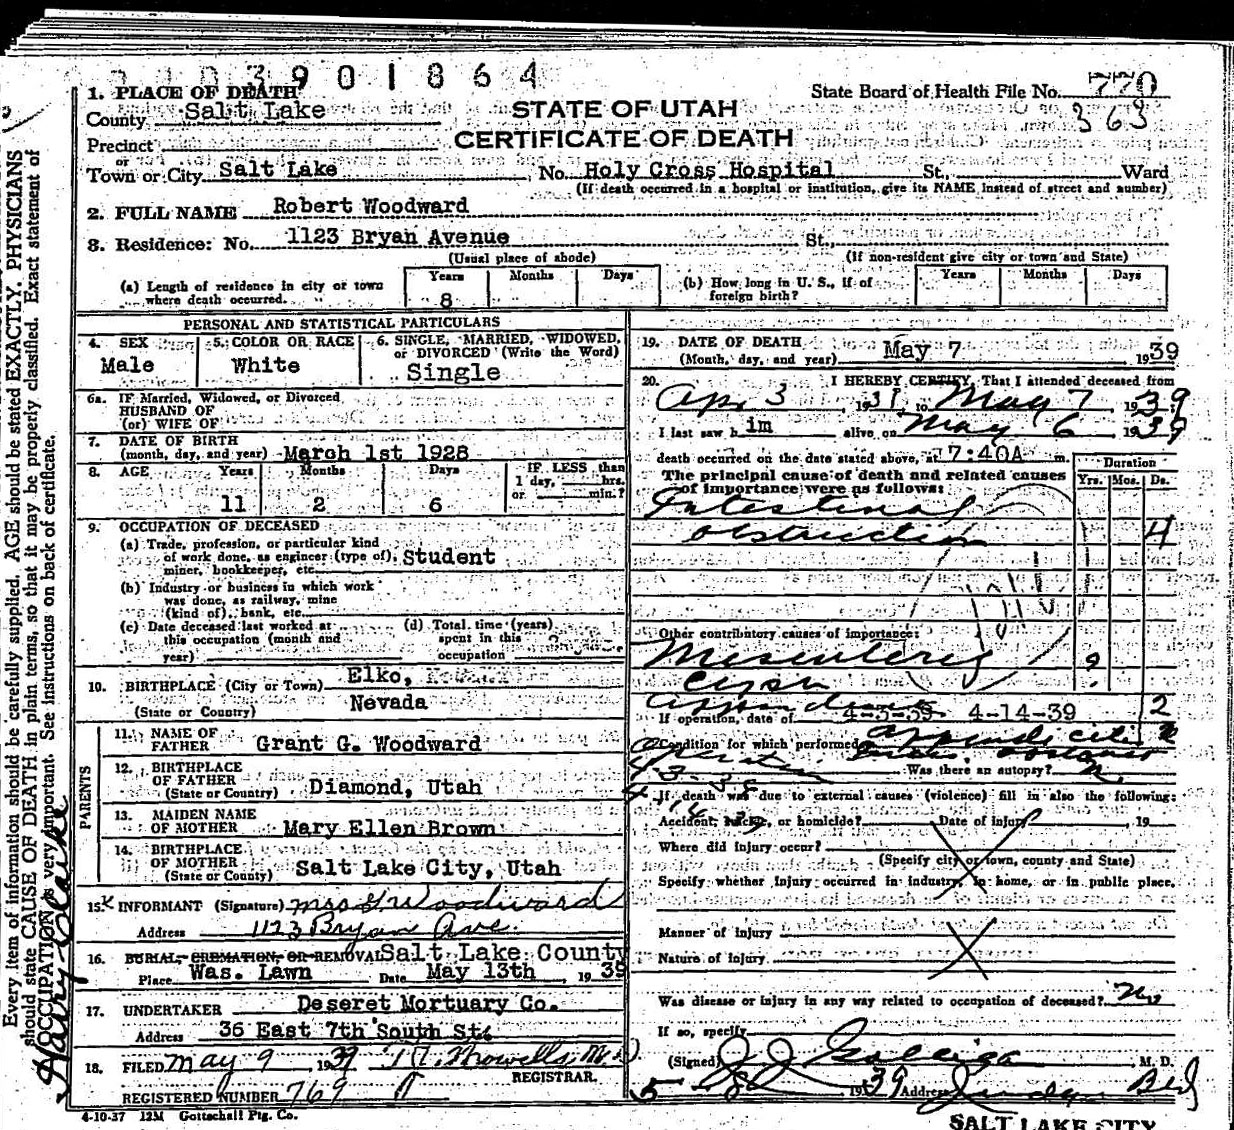 3901864
1. PLACE OF DEATH
County Salt Lake
Precinct
or
Town or City Salt Lake No. Holy Cross Hospital St., Ward
(If death occurred in a hospital or institution, give its NAME instead of street and number)
STATE OF UTAH
CERTIFICATE OF DEATH
State Board of Health File No. 770
363
2. FULL NAME Robert Woodward
3. Residence: No. 1123 Bryan Avenue St.,
(Usual place of abode) (If non-resident give city or town and State)
(a) Length of residence in city or town where death occurred. Years 8 Months Days
(b) How long in U. S., if of foreign birth? Years Months Days
PERSONAL AND STATISTICAL PARTICULARS
4. SEX Male
5. COLOR OR RACE White
6. SINGLE, MARRIED, WIDOWED, or DIVORCED (Write the Word) Single
6a. IF Married, Widowed, or Divorced
HUSBAND OF
(or) WIFE OF
7. DATE OF BIRTH
(month, day, and year) March 1st 1928
8. AGE Years 11 Months 2 Days 6 IF LESS than 1 day, hrs. or min.?
9. OCCUPATION OF DECEASED
(a) Trade, profession, or particular kind
of work done, as engineer (type of), Student
miner, bookkeeper, etc.
(b) Industry or business in which work
was done, as railway, mine
(kind of), bank, etc.
(c) Date deceased last worked at this occupation (month and year)
(d) Total time (years) spent in this occupation
10. BIRTHPLACE (City or Town) Elko,
(State or Country) Nevada
PARENTS
11. NAME OF FATHER Grant G. Woodward
12. BIRTHPLACE OF FATHER
(State or Country) Diamond, Utah
13. MAIDEN NAME OF MOTHER Mary Ellen Brown
14. BIRTHPLACE OF MOTHER
(State or County) Salt Lake City, Utah
15. INFORMANT (Signature) Mrs G Woodward
Address 1123 Bryan Ave.
16. BURIAL, CREMATION, OR REMOVAL Salt Lake County
Place Was. Lawn Date May 13th, 1939
17. UNDERTAKER Deseret Mortuary Co.
Address 36 East 7th South St.
18. FILED May 9 1939
REGISTRAR.
REGISTERED NUMBER 769
4-10-37 12M Gottschall Ptg. Co.
19. DATE OF DEATH
(Month, day, and year) May 7 1939
20. I HEREBY CERTIFY, That I attended deceased from
Apr 3 193 to May 7 1939
I last saw him alive on May 6 1939
death occurred on the date stated above, at 7:40A m.
The principal cause of death and related causes
of importance were as follows:
Duration
Yrs. Mos. Ds.
Intestinal
obstruction 4
Other contributory causes of importance:
Mesenteric ?
2
If operation, date of 4-3-39 4-14-39
Condition for which performed appendicitis
Was there an autopsy?
If death was due to external causes (violence) fill in also the following:
Accident, suicide, or homicide? Date of injury 19
Where did injury occur?
(Specify city or town, county and State)
Specify whether injury occurred in industry, in home, or in public place,
Manner of injury
Nature of injury
Was disease or injury in any way related to occupation of deceased? No
If so, specify
(Signed) M. D.
1939 Address
SALT LAKE CITY
Every item of information should be carefully supplied. AGE should be stated EXACTLY. PHYSICIANS
should state CAUSE OF DEATH in plain terms, so that it may be properly classified. Exact statement of
OCCUPATION is very important. See instructions on back of certificate.